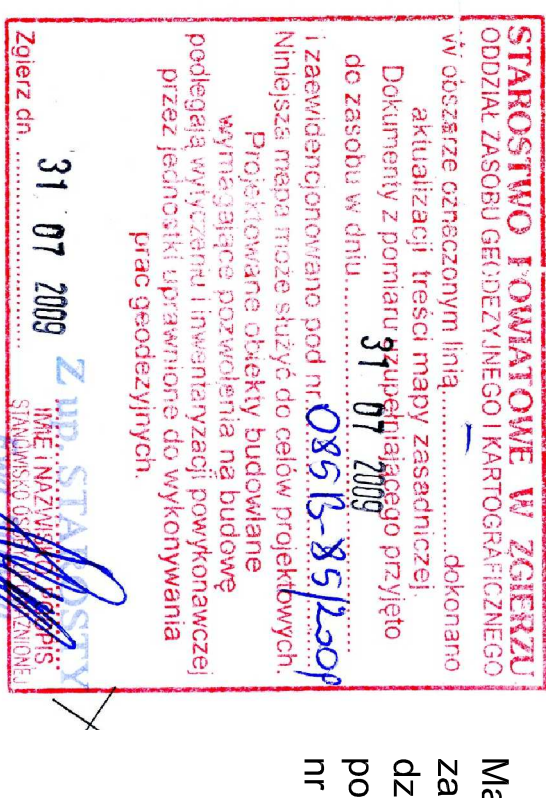 STAROSTWO POWIATOWE W ZGIERZU
ODDZIAŁ ZASOBU GEODEZYJNEGO I KARTOGRAFICZNEGO
W obszarze oznaczonym linią..............dokonano
aktualizacji treści mapy zasadniczej.
Dokumenty z pomiaru uzupełniającego przyjęto
do zasobu w dniu 31 07 2009
i zaewidencjonowano pod nr
Niniejsza mapa może służyć do celów projektowych.
Projektowane obiekty budowlane
wymagające pozwolenia na budowę
podlegają wytyczeniu i inwentaryzacji powykonawczej
przez jednostki uprawnione do wykonywania
prac geodezyjnych.
Zgierz dn. 31 07 2009
Z up. STAROSTY
IMIĘ I NAZWISKO PODPIS
STANOWISKO
Ma
za
dz
po
nr